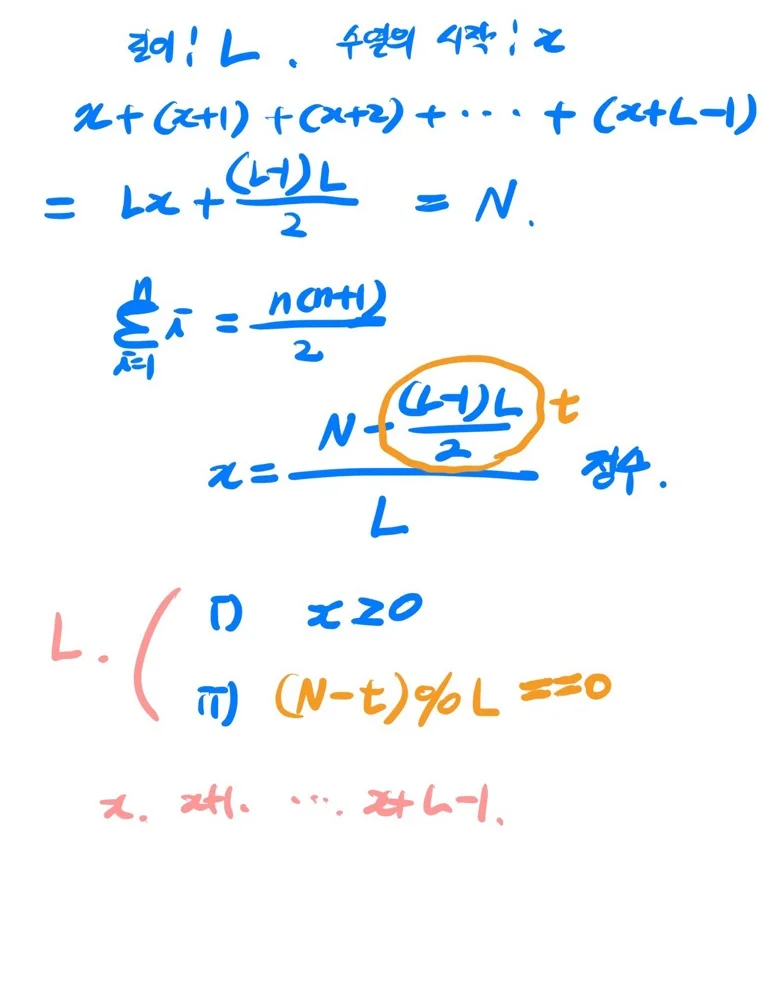 길이 : L . 수열의 시작 : x
x + (x+1) + (x+2) + ··· + (x+L-1)
= Lx + (L-1)L/2 = N.
n∑i=1 i = n(n+1)/2
x = (N - (L-1)L/2)/L 정수. t
L. ( i) x ≥ 0
ii) (N-t)%L ==0
x. x+1. ···. x+L-1.